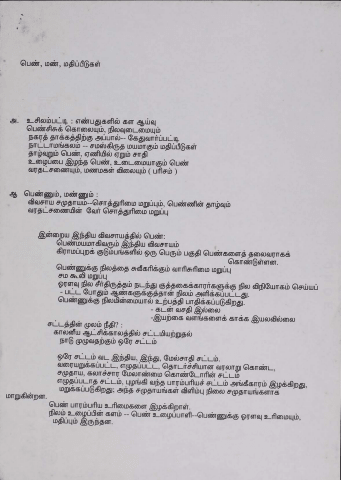 பெண், மண், மதிப்பீடுகள்
அ. உசிலம்பட்டி : எண்பதுகளில் கள ஆய்வு
பெண்சிசுக் கொலையும், நிலவுடைமையும்
நகரத் தாக்கத்திற்கு அப்பால்– கேதுவார்ப்பட்டி
நாட்டாமங்கலம் – சமஸ்கிருத மயமாகும் மதிப்பீடுகள்
தாழ்வுறும் பெண், ஏணியில் ஏறும் சாதி
உழைப்பை இழந்த பெண், உடைமையாகும் பெண்
வரதட்சணையும், மணமகள் விலையும் ( பரிசம் )
ஆ பெண்ணும், மண்ணும் :
விவசாய சமுதாயம்–சொத்துரிமை மறுப்பும், பெண்ணின் தாழ்வும்
வரதட்சணையின் வேர் சொத்துரிமை மறுப்பு
இன்றைய இந்திய விவசாயத்தில் பெண்:
பெண்மயமாகிவரும் இந்திய விவசாயம்
கிராமப்புறக் குடும்பங்களில் ஒரு பெரும் பகுதி பெண்களைத் தலைவராகக்
கொண்டுள்ளன.
பெண்ணுக்கு நிலத்தை சுவீகரிக்கும் வாரிசுரிமை மறுப்பு
சம கூலி மறுப்பு
ஓரளவு நில சீர்திருத்தம் நடந்து குத்தகைக்காரர்களுக்கு நில விநியோகம் செய்யப்
– பட்ட போதும் ஆண்களுக்குத்தான் நிலம் அளிக்கப்பட்டது.
பெண்ணுக்கு நிலமின்மையால் உற்பத்தி பாதிக்கப்படுகிறது.
– கடன் வசதி இல்லை
–இயற்கை வளங்களைக் காக்க இயலவில்லை
சட்டத்தின் மூலம் நீதி? :
காலனிய ஆட்சிக்காலத்தில் சட்டமியற்றுதல்
நாடு முழுவதற்கும் ஒரே சட்டம்
ஒரே சட்டம் வட இந்திய, இந்து, மேல்சாதி சட்டம்.
வரையறுக்கப்பட்ட, எழுதப்பட்ட, தொடர்ச்சியான வரலாறு கொண்ட,
சமுதாய, கலாச்சார மேலாண்மை கொண்டோரின் சட்டம்
எழுதப்படாத சட்டம், புழங்கி வந்த பாரம்பரியச் சட்டம் அங்கீகாரம் இழக்கிறது,
மறுக்கப்படுகிறது; அந்த சமுதாயங்கள் விளிம்பு நிலை சமுதாயங்களாக
மாறுகின்றன.
பெண் பாரம்பரிய உரிமைகளை இழக்கிறாள்.
நிலம் உழைப்பின் களம் – பெண் உழைப்பாளி–பெண்ணுக்கு ஓரளவு உரிமையும்,
மதிப்பும் இருந்தன.